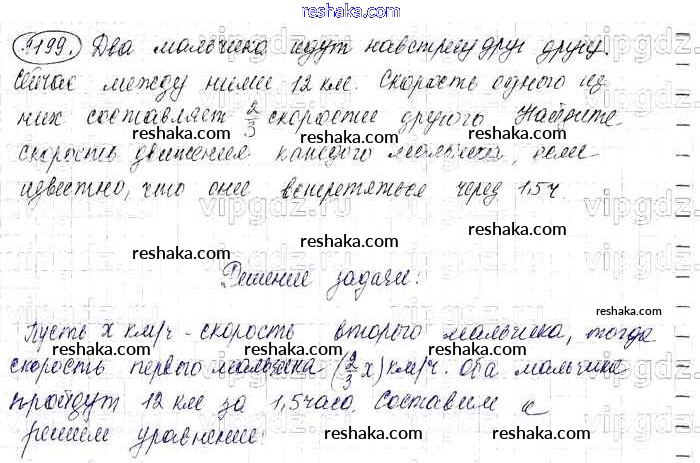 reshaka.com
1199. Два мальчика идут навстречу друг другу.
Сейчас между ними 12 км. Скорость одного из
них составляет 2/3 скорости другого Найдите
reshaka.com reshaka.com
скорость движения каждого мальчика, если
известно, что они встретяться через 1,5 ч.
reshaka.com reshaka.com reshaka.com
vipgdz.ru
reshaka.com reshaka.com reshaka.com
Решение задачи:
reshaka.com reshaka.com reshaka.com
Пусть x км/ч - скорость второго мальчика, тогда
скорость первого мальчика (2/3 x) км/ч. Оба мальчика
reshaka.com reshaka.com
пройдут 12 км за 1,5 часа. Составим и
решим уравнение:
reshaka.com reshaka.com reshaka.com
reshaka.com